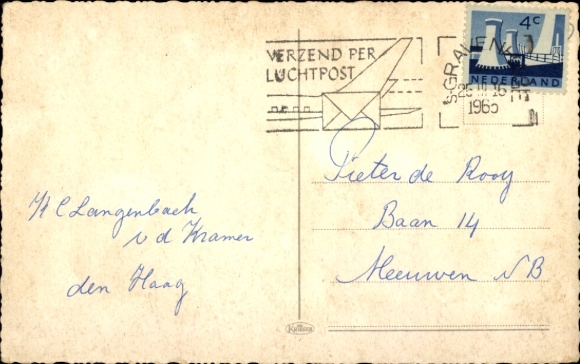 VERZEND PER
LUCHTPOST
4c
NEDERLAND
'S-GRAVENHAGE
1965
Pieter de Rooy
Baan 14
Meeuwen NB
Langenbach
v d Kramer
den Haag